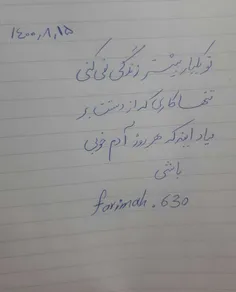 ۱۴۰۰,۸,۱۵
تو یکبار بیشتر زندگی نمی کنی
تنها کاری که از دستت بر
میاد اینه که هر روز آدم خوبی
باشی
farimah.630